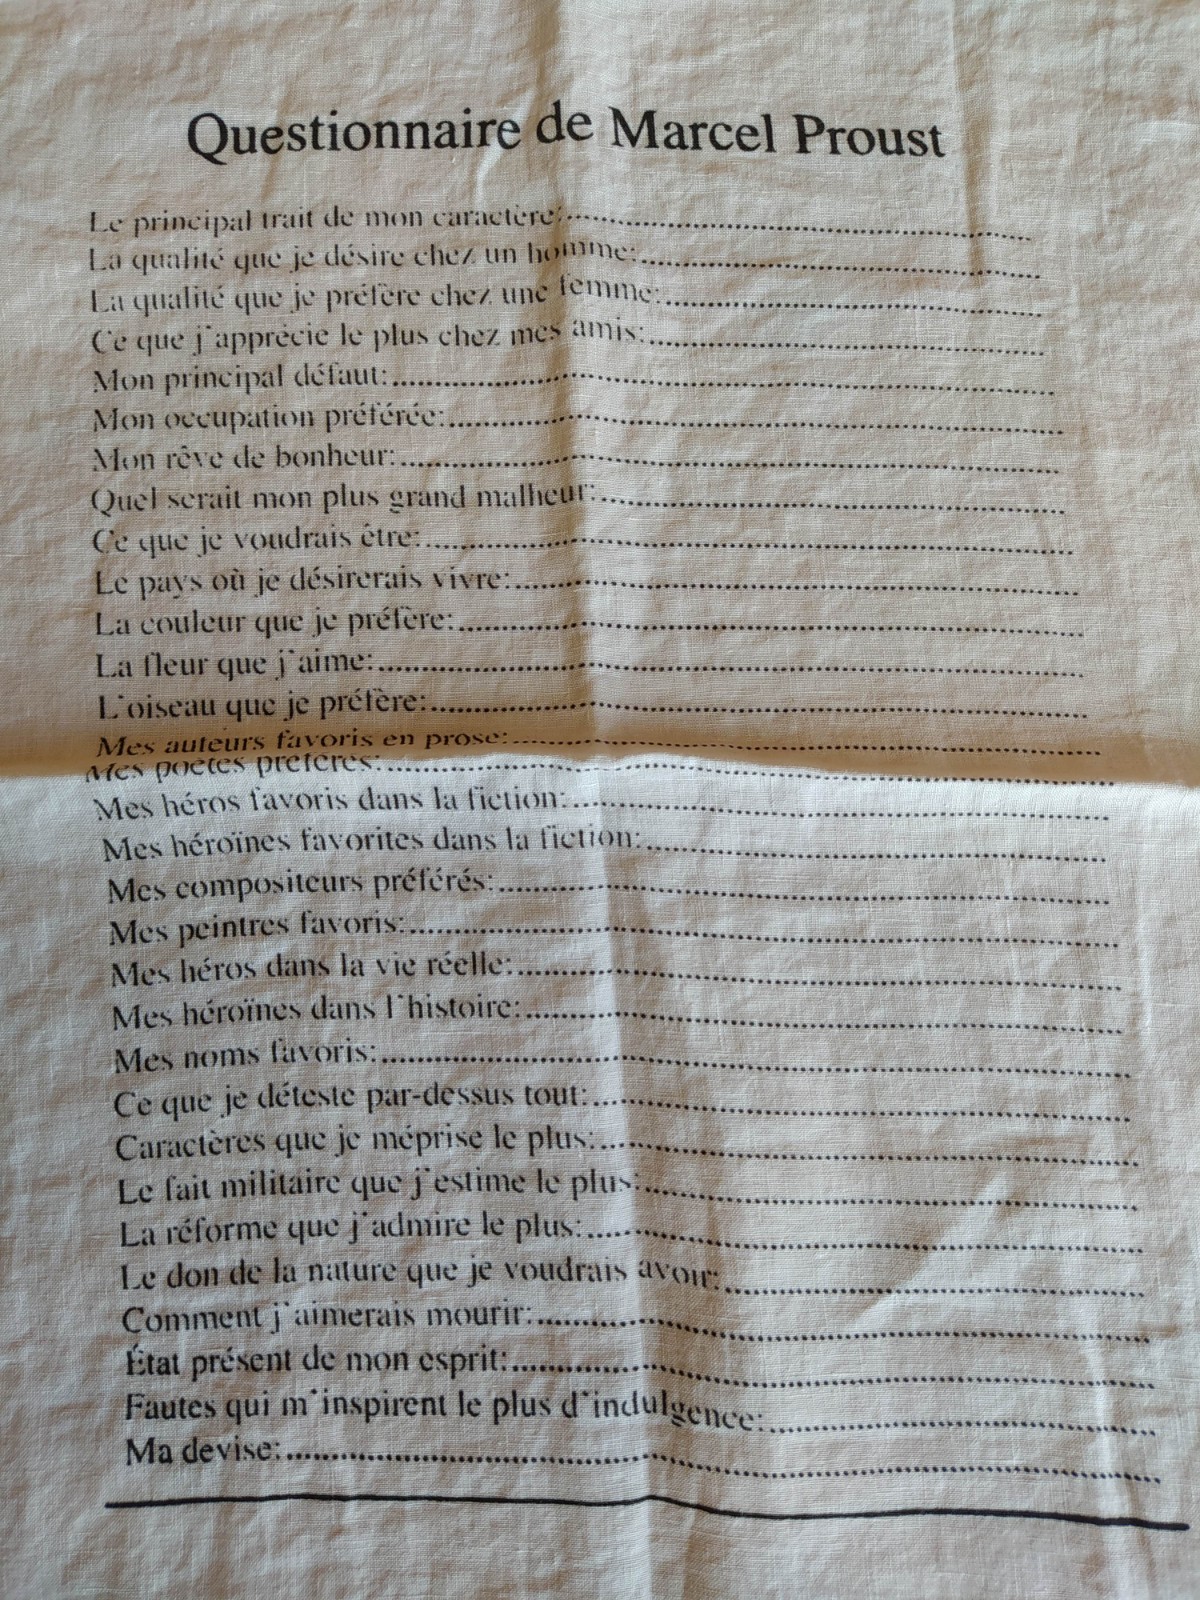 Questionnaire de Marcel Proust
Le principal trait de mon caractère:
La qualité que je désire chez un homme:
La qualité que je préfère chez une femme:
Ce que j'apprécie le plus chez mes amis:
Mon principal défaut:
Mon occupation préférée:
Mon rêve de bonheur:
Quel serait mon plus grand malheur:
Ce que je voudrais être:
Le pays où je désirerais vivre:
La couleur que je préfère:
La fleur que j'aime:
L'oiseau que je préfère:
Mes auteurs favoris en prose:
Mes poètes préférés:
Mes héros favoris dans la fiction:
Mes héroïnes favorites dans la fiction:
Mes compositeurs préférés:
Mes peintres favoris:
Mes héros dans la vie réelle:
Mes héroïnes dans l'histoire:
Mes noms favoris:
Ce que je déteste par-dessus tout:
Caractères que je méprise le plus:
Le fait militaire que j'estime le plus:
La réforme que j'admire le plus:
Le don de la nature que je voudrais avoir:
Comment j'aimerais mourir:
État présent de mon esprit:
Fautes qui m'inspirent le plus d'indulgence:
Ma devise: